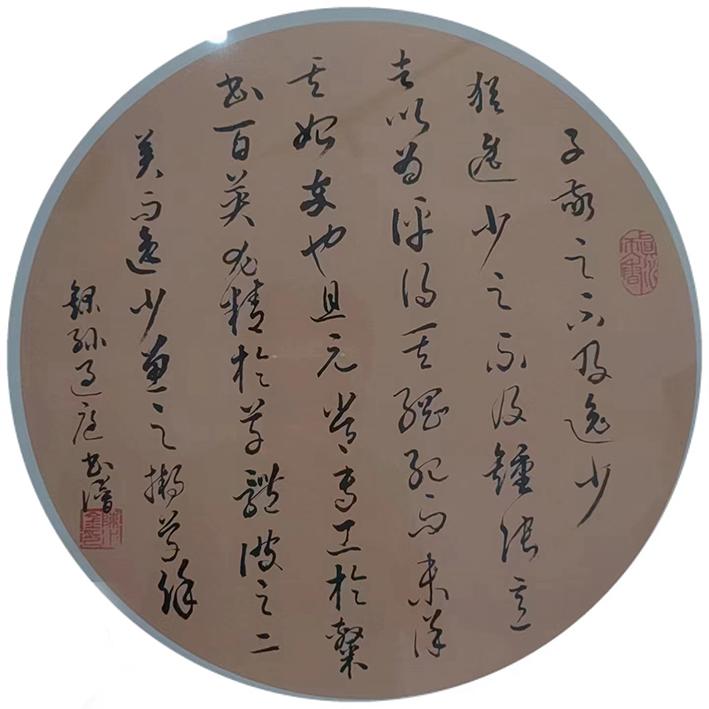 子敬之不及逸少
猶逸少之不及鍾張意
者以為評得其綱紀而未詳
其始卒也且元常專工於隸
書百英尤精於草體彼之二
美而逸少兼之擬草餘
錄孫過庭書譜